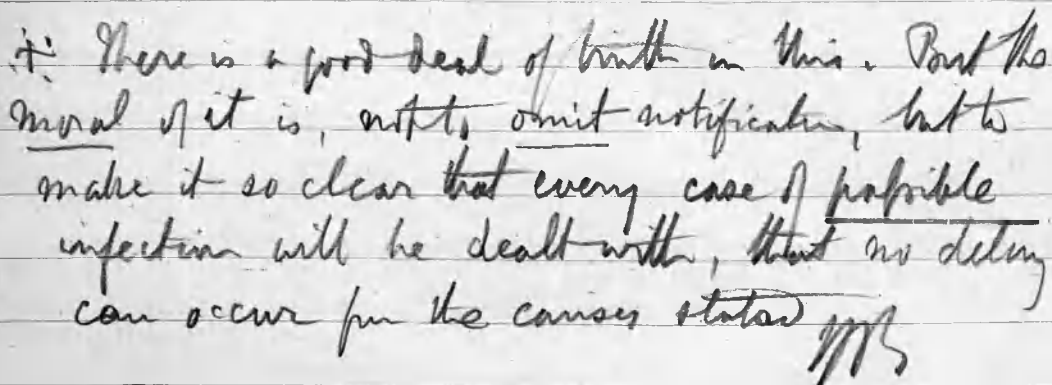 There is a good deal of truth in this. But the
moral of it is, not to omit notification, but to
make it so clear that every case of possible
infection will be dealt with, that no delay
can occur from the causes stated